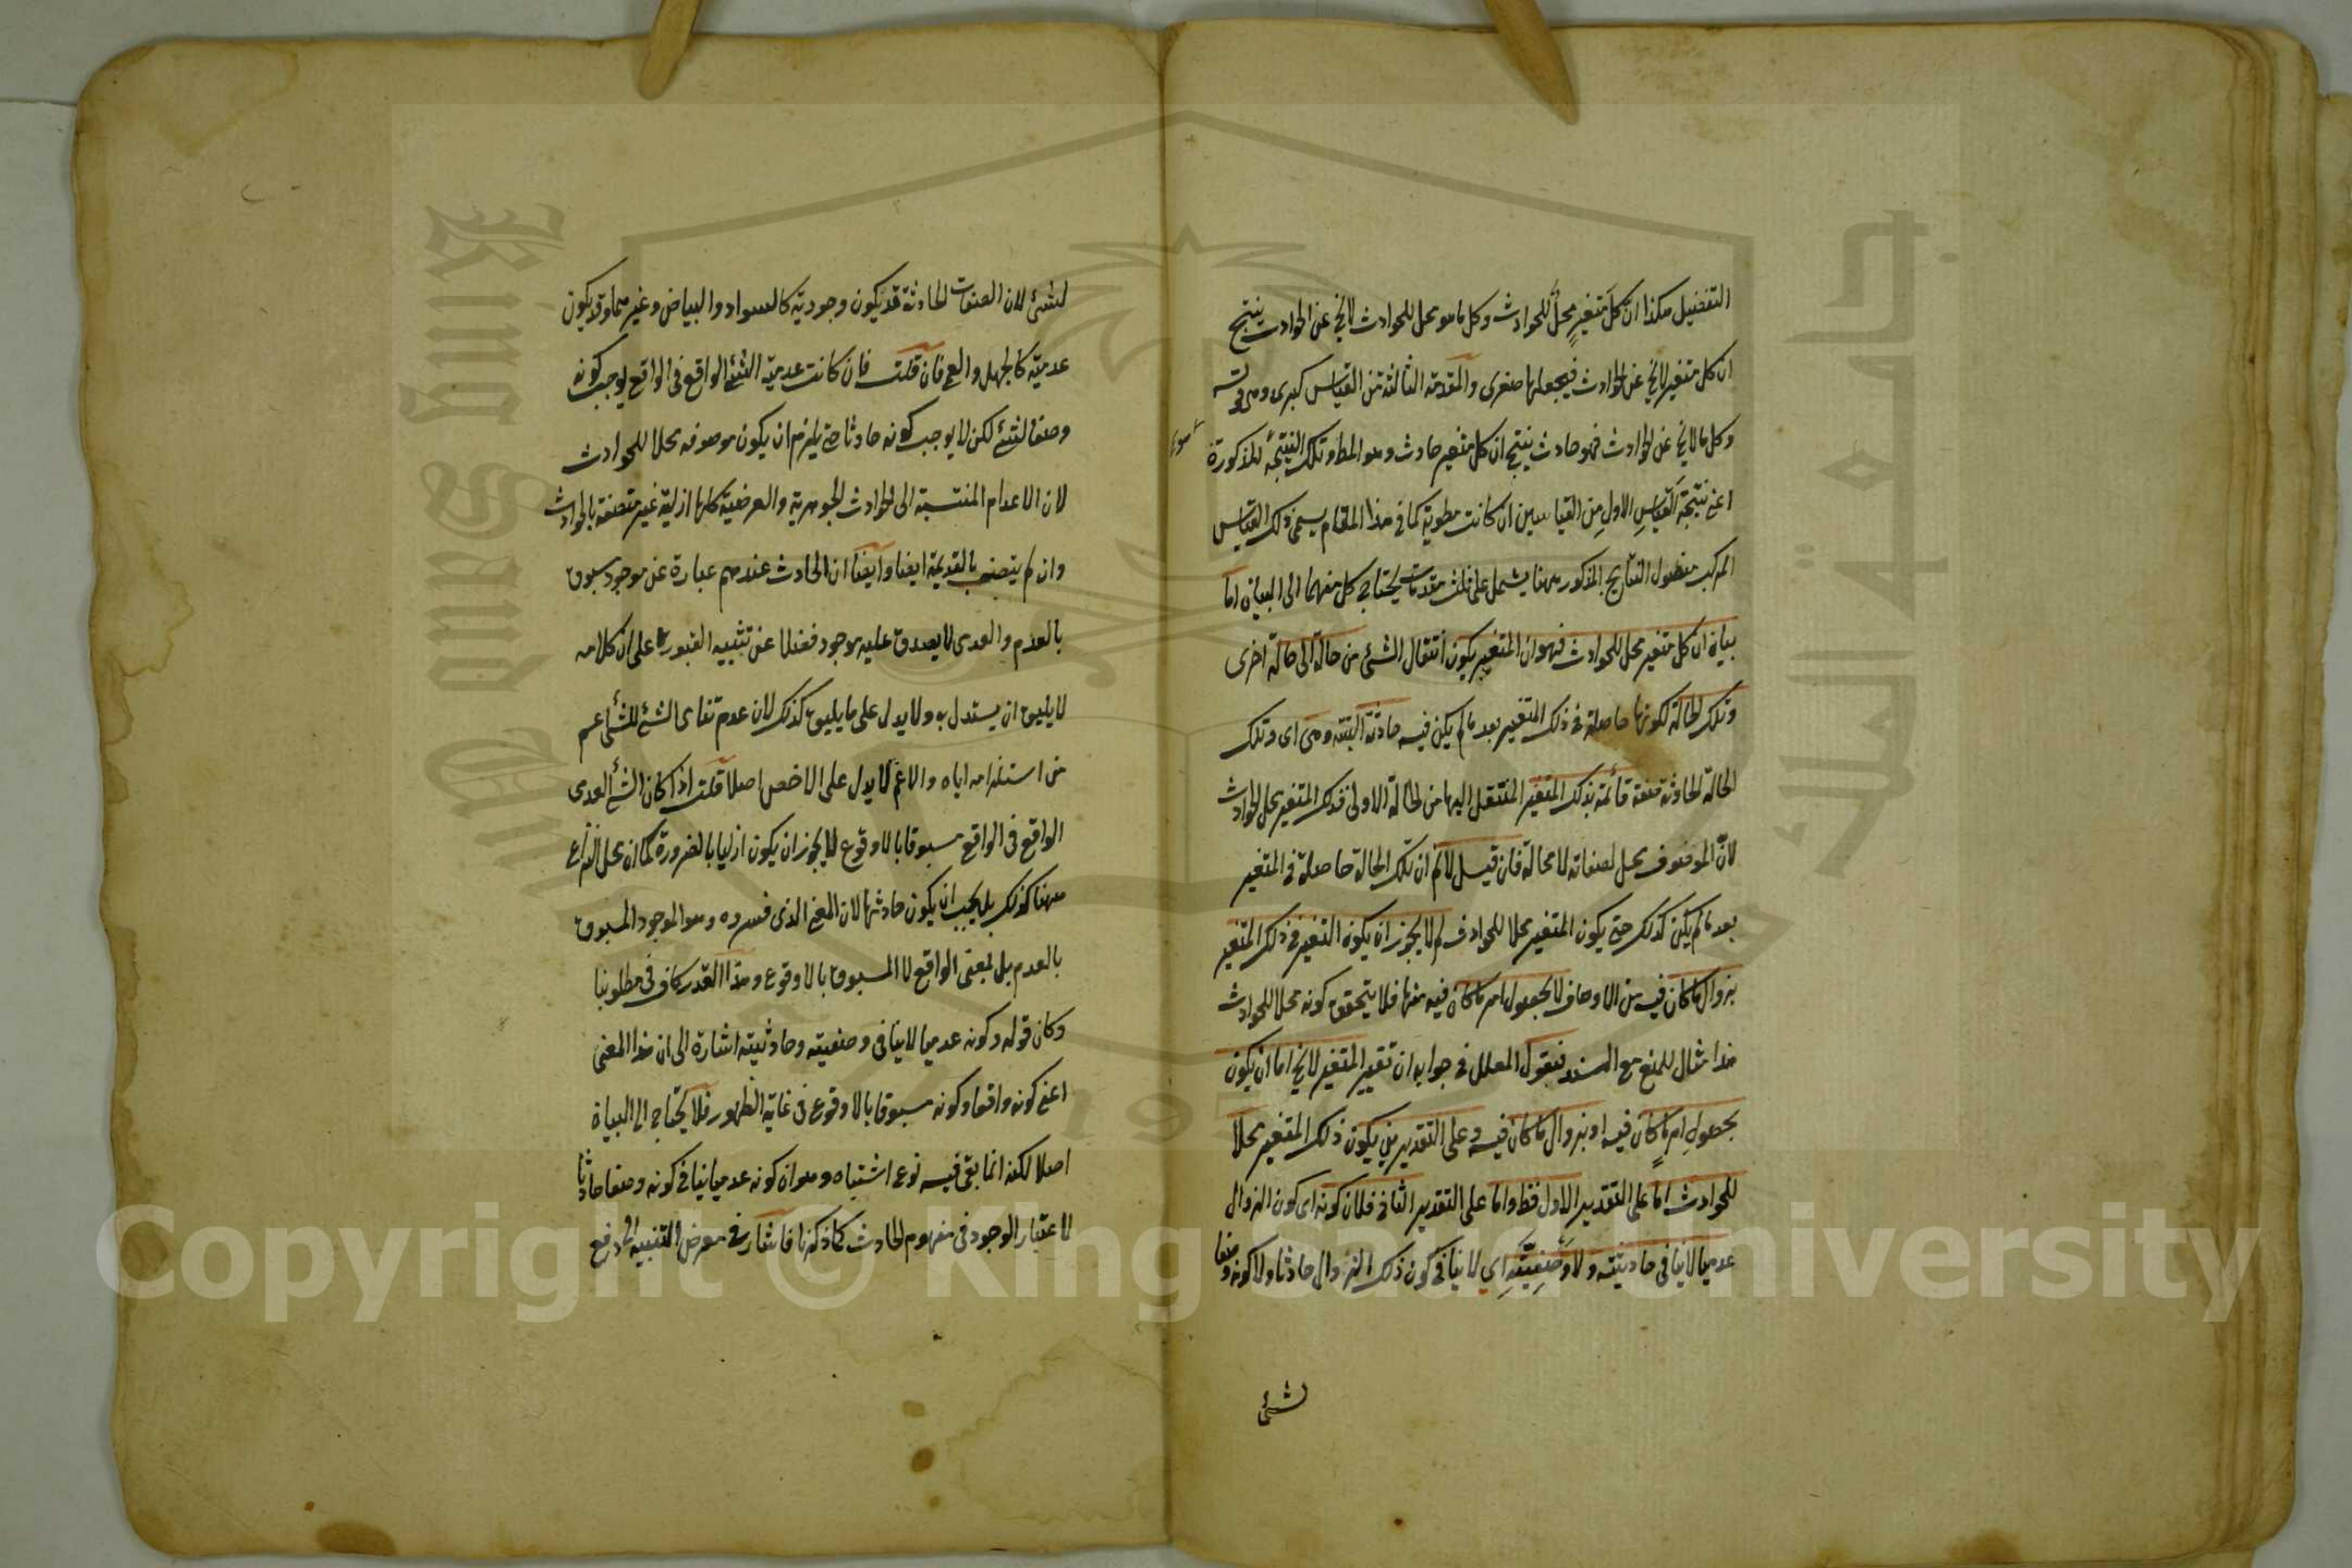 التفضيل هكذا ان كل متغير محل للحوادث وكل ما هو محل للحوادث لا يخ عن الحوادث ينتج
ان كل متغير لا يخ عن الحوادث فيجعلها صغرى والمقدمة الثالثة من القياس كبرى وهى قوله
وكل ما لا يخ عن الحوادث فهو حادث ينتج ان كل متغير حادث وهو المط وتلك النتيجة المذكورة
اعنى نتيجة القياس الاول من القياسين ان كانت مطوية كما فى هذا المقام يسمى ذلك القياس
المركب مفصول النتايج المذكور ههنا يشمل على ثلث مقدمات يحتاج كل منهما الى البيان اما
بيان ان كل متغير محل للحوادث فهو ان المتغير يكون انتقال الشئ من حالة الى حالة اخرى
وتلك الحالة لكونها حاصلة فى ذلك المتغير بعد ما لم يكن فيه حادثة البتة وهى اى وتلك
الحالة الحادثة صفة قائمة بذلك المتغير المنتقل اليها من الحالة الاولى فذلك المتغير محل الحوادث
لان الموصوف محل لصفاته لا محالة فان قيل لانم ان تلك الحالة حاصلة فى المتغير
بعد ما لم يكن كذلك حتى يكون المتغير محلا للحوادث لم لا يجوز ان يكون التغير فى ذلك المتغير
بزوال ما كان فيه من الاوصاف لا بحصول امر ما كان فيه منها فلا يتحقق كونه محلا للحوادث
هذا مثال للمنع مع السند فيقول المعلل فى جوابه ان تغيير المتغير لا يخ اما ان يكون
بحصول امر ما كان فيه او بزوال ما كان فيه وعلى التقديرين يكون ذلك المتغير محلا
للحوادث اما على التقدير الاول فظ واما على التقدير الثانى فلان كونه اى كون الزوال
عدميا لا ينافى حادثيته ولا وصفيته اى لا ينافى كون ذلك الزوال حادثا ولا كونه وصفا
لشئ
لشئ لان الصفات الحادثة قد يكون وجودية كالسواد والبياض وغيرهما وقد يكون
عدمية كالجهل والعمى فان قلت فان كانت عدمية الشئ الواقع فى الواقع يوجب كونه
وصفا لشئ لكن لا يوجب كونه حادثا حتى يلزم ان يكون موصوفه محلا للحوادث
لان الاعدام المنتسبة الى الحوادث الجوهرية والعرضية كلها ازلية غير متصفة بالحوادث
وان لم يتصف بالقديمة ايضا وايضا ان الحادث عندهم عبارة عن موجود مسبوق
بالعدم والعدمى لا يصدق عليه موجود فضلا عن تثبيه القبور على ان كلامه
لا يليق ان يستدل به ولا يدل على ما يليق كذلك لان عدم تنافى الشئ للشئ اعم
من استلزامه اياه والاعم لا يدل على الاخص اصلا قلت اذا كان الشئ العدمى
الواقع فى الواقع مسبوقا بالاوقوع لا يجوز ان يكون ازليا بالضرورة كما ان محل النزاع
ههنا كذلك بل يجب ان يكون حادثها لان المعنى الذى فسروه وهو الموجود المسبوق
بالعدم بل بمعنى الواقع لا المسبوق بالاوقوع وهذا القدر كاف فى مطلوبنا
وكان قوله وكونه عدميا لا ينافى وصفيته وحادثيته اشارة الى ان هذا المعنى
اعنى كونه واقعا وكونه مسبوقا بالاوقوع فى غاية الظهور فلا يحتاج الى البيان
اصلا لكنه انما بقى فيه نوع اشتباه وهو ان كونه عدميا ينافى كونه وصفا حادثا
لاعتبار الوجود فى مفهوم الحادث كما ذكرنا فاشار فى معرض التنبيه الى دفع
Copyright © King Saud University